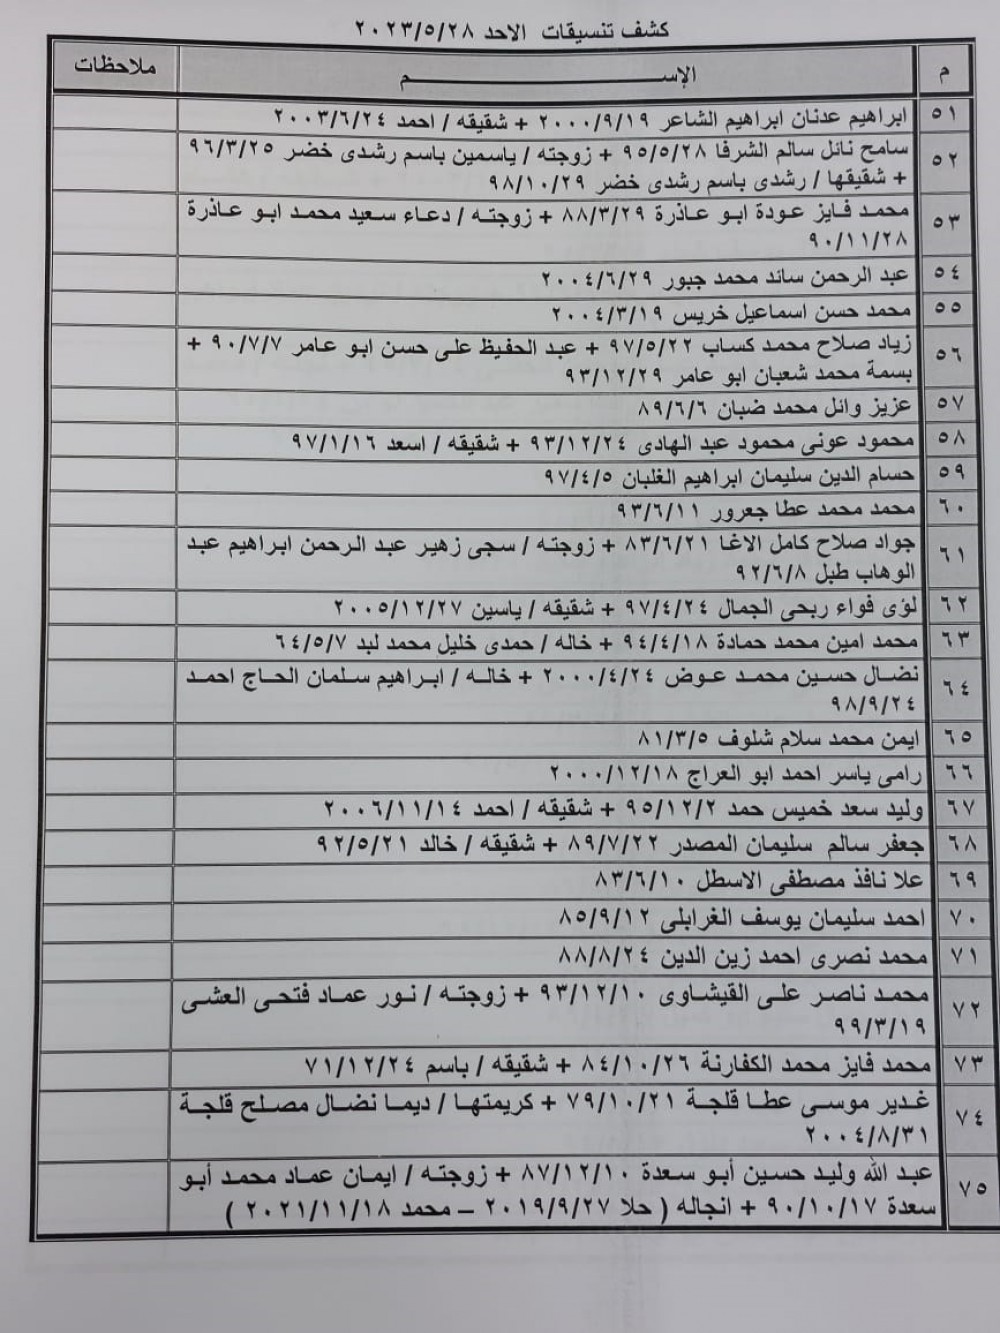 كشف تنسيقات الاحد ٢٠٢٣/٥/٢٨
م الإســـــــــــــــــم ملاحظات
٥١ ابراهيم عدنان ابراهيم الشاعر ٢٠٠٠/٩/١٩ + شقيقه / احمد ٢٠٠٣/٦/٢٤
٥٢ سامح نائل سالم الشرفا ٩٥/٥/٢٨ + زوجته / ياسمين باسم رشدى خضر ٩٦/٣/٢٥
+ شقيقها / رشدى باسم رشدى خضر ٩٨/١٠/٢٩
٥٣ محمد فايز عودة ابو عاذرة ٨٨/٣/٢٩ + زوجته / دعاء سعيد محمد ابو عاذرة
٩٠/١١/٢٨
٥٤ عبد الرحمن سائد محمد جبور ٢٠٠٤/٦/٢٩
٥٥ محمد حسن اسماعيل خريس ٢٠٠٤/٣/١٩
٥٦ زياد صلاح محمد كساب ٩٧/٥/٢٢ + عبد الحفيظ على حسن ابو عامر ٩٠/٧/٧ +
بسمة محمد شعبان ابو عامر ٩٣/١٢/٢٩
٥٧ عزيز وائل محمد ضبان ٨٩/٦/٦
٥٨ محمود عونى محمود عبد الهادى ٩٣/١٢/٢٤ + شقيقه / اسعد ٩٧/١/١٦
٥٩ حسام الدين سليمان ابراهيم الغلبان ٩٧/٤/٥
٦٠ محمد محمد عطا جعرور ٩٣/٦/١١
٦١ جواد صلاح كامل الاغا ٨٣/٦/٢١ + زوجته / سجى زهير عبد الرحمن ابراهيم عبد
الوهاب طبل ٩٢/٦/٨
٦٢ لؤى فواء ربحى الجمال ٩٧/٤/٢٤ + شقيقه / ياسين ٢٠٠٥/١٢/٢٧
٦٣ محمد امين محمد حمادة ٩٤/٤/١٨ + خاله / حمدى خليل محمد لبد ٦٤/٥/٧
٦٤ نضال حسين محمد عوض ٢٠٠٠/٤/٢٤ + خاله / ابراهيم سلمان الحاج احمد
٩٨/٩/٢٤
٦٥ ايمن محمد سلام شلوف ٨١/٣/٥
٦٦ رامى ياسر احمد ابو العراج ٢٠٠٠/١٢/١٨
٦٧ وليد سعد خميس حمد ٩٥/١٢/٢ + شقيقه / احمد ٢٠٠٦/١١/١٤
٦٨ جعفر سالم سليمان المصدر ٨٩/٧/٢٢ + شقيقه / خالد ٩٢/٥/٢١
٦٩ علا نافذ مصطفى الاسطل ٨٣/٦/١٠
٧٠ احمد سليمان يوسف الغرابلى ٨٥/٩/١٢
٧١ محمد نصرى احمد زين الدين ٨٨/٨/٢٤
٧٢ محمد ناصر على القيشاوى ٩٣/١٢/١٠ + زوجته / نور عماد فتحى العشى
٩٩/٣/١٩
٧٣ محمد فايز محمد الكفارنة ٨٤/١٠/٢٦ + شقيقه / باسم ٧١/١٢/٢٤
٧٤ غدير موسى عطا قلجة ٧٩/١٠/٢١ + كريمتها / ديما نضال مصلح قلجة
٢٠٠٤/٨/٣١
٧٥ عبد الله وليد حسين أبو سعدة ٨٧/١٢/١٠ + زوجته / ايمان عماد محمد أبو
سعدة ٩٠/١٠/١٧ + انجاله ( حلا ٢٠١٩/٩/٢٧ – محمد ٢٠٢١/١١/١٨ )